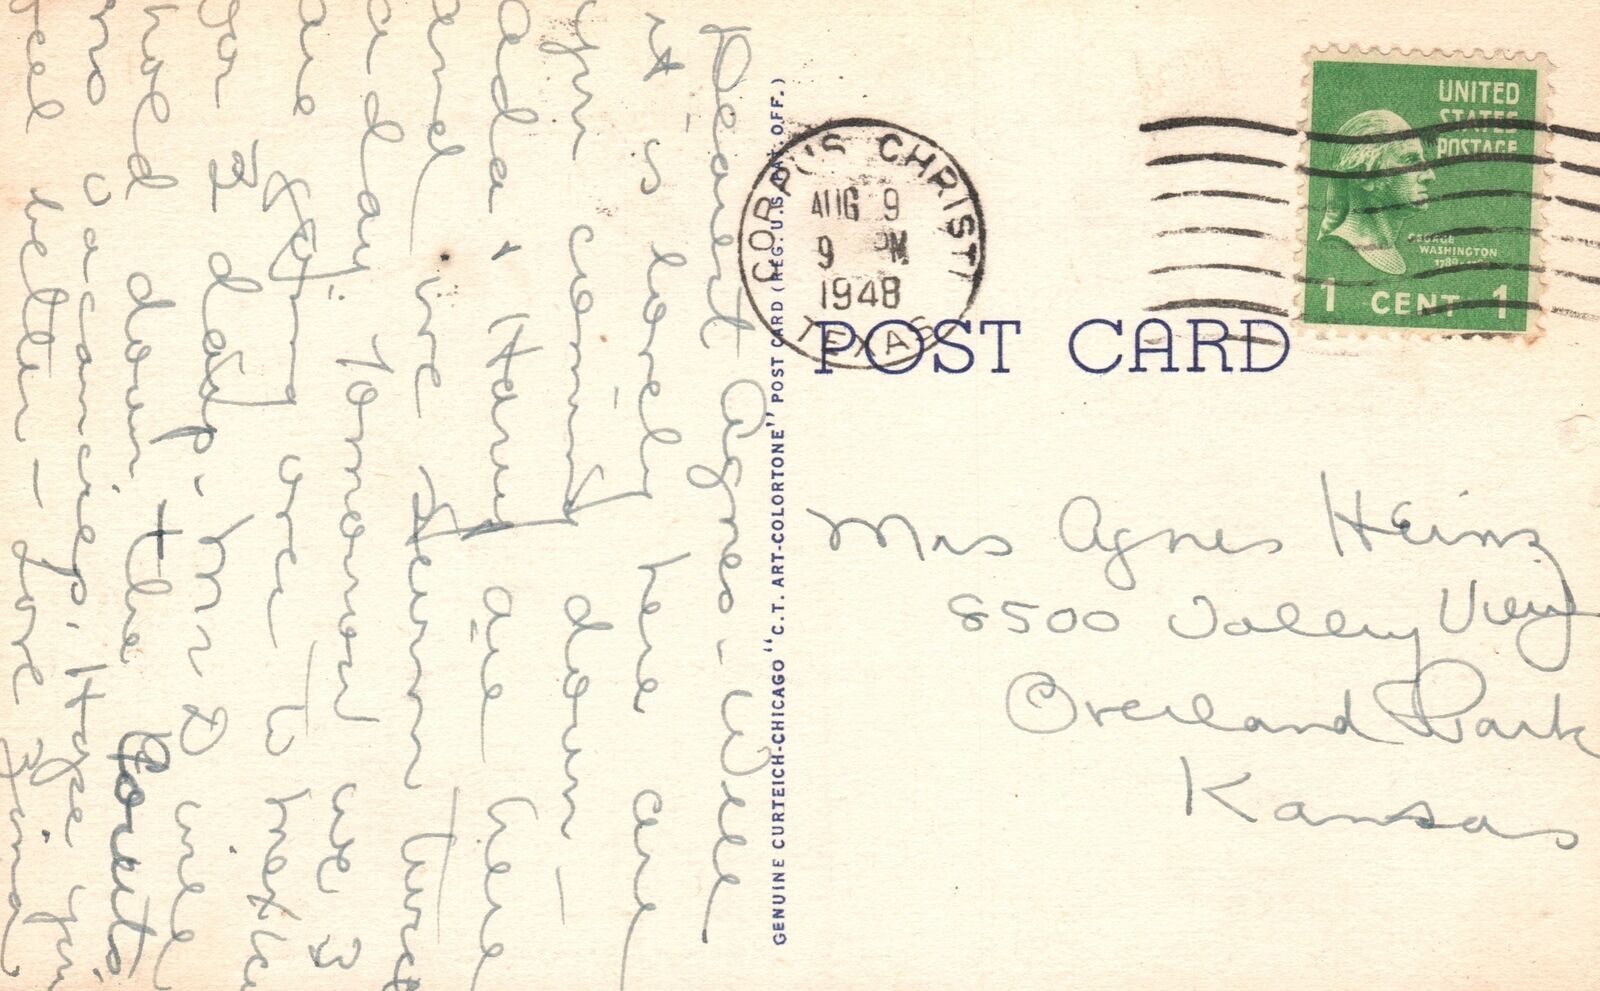 Dearest Agnes - Well
it is lovely here are
you coming down -
Ada + Harry are here
and we swim twice
a day. Tomorrow we 3
are going over to Mexico
for 2 days. Mrs D will
hold down the
no vacancies, Hope you
feel better - Love
GENUINE CURTEICH-CHICAGO "C. T. ART-COLORTONE" POST CARD (REG. U. S. PAT. OFF.)
CORPUS CHRISTI
AUG 9
9 PM
1948
TEXAS
UNITED
STATES
POSTAGE
GEORGE
WASHINGTON
1 CENT 1
POST CARD
Mrs Agnes Heinz
8500 Valley View
Overland Park
Kansas